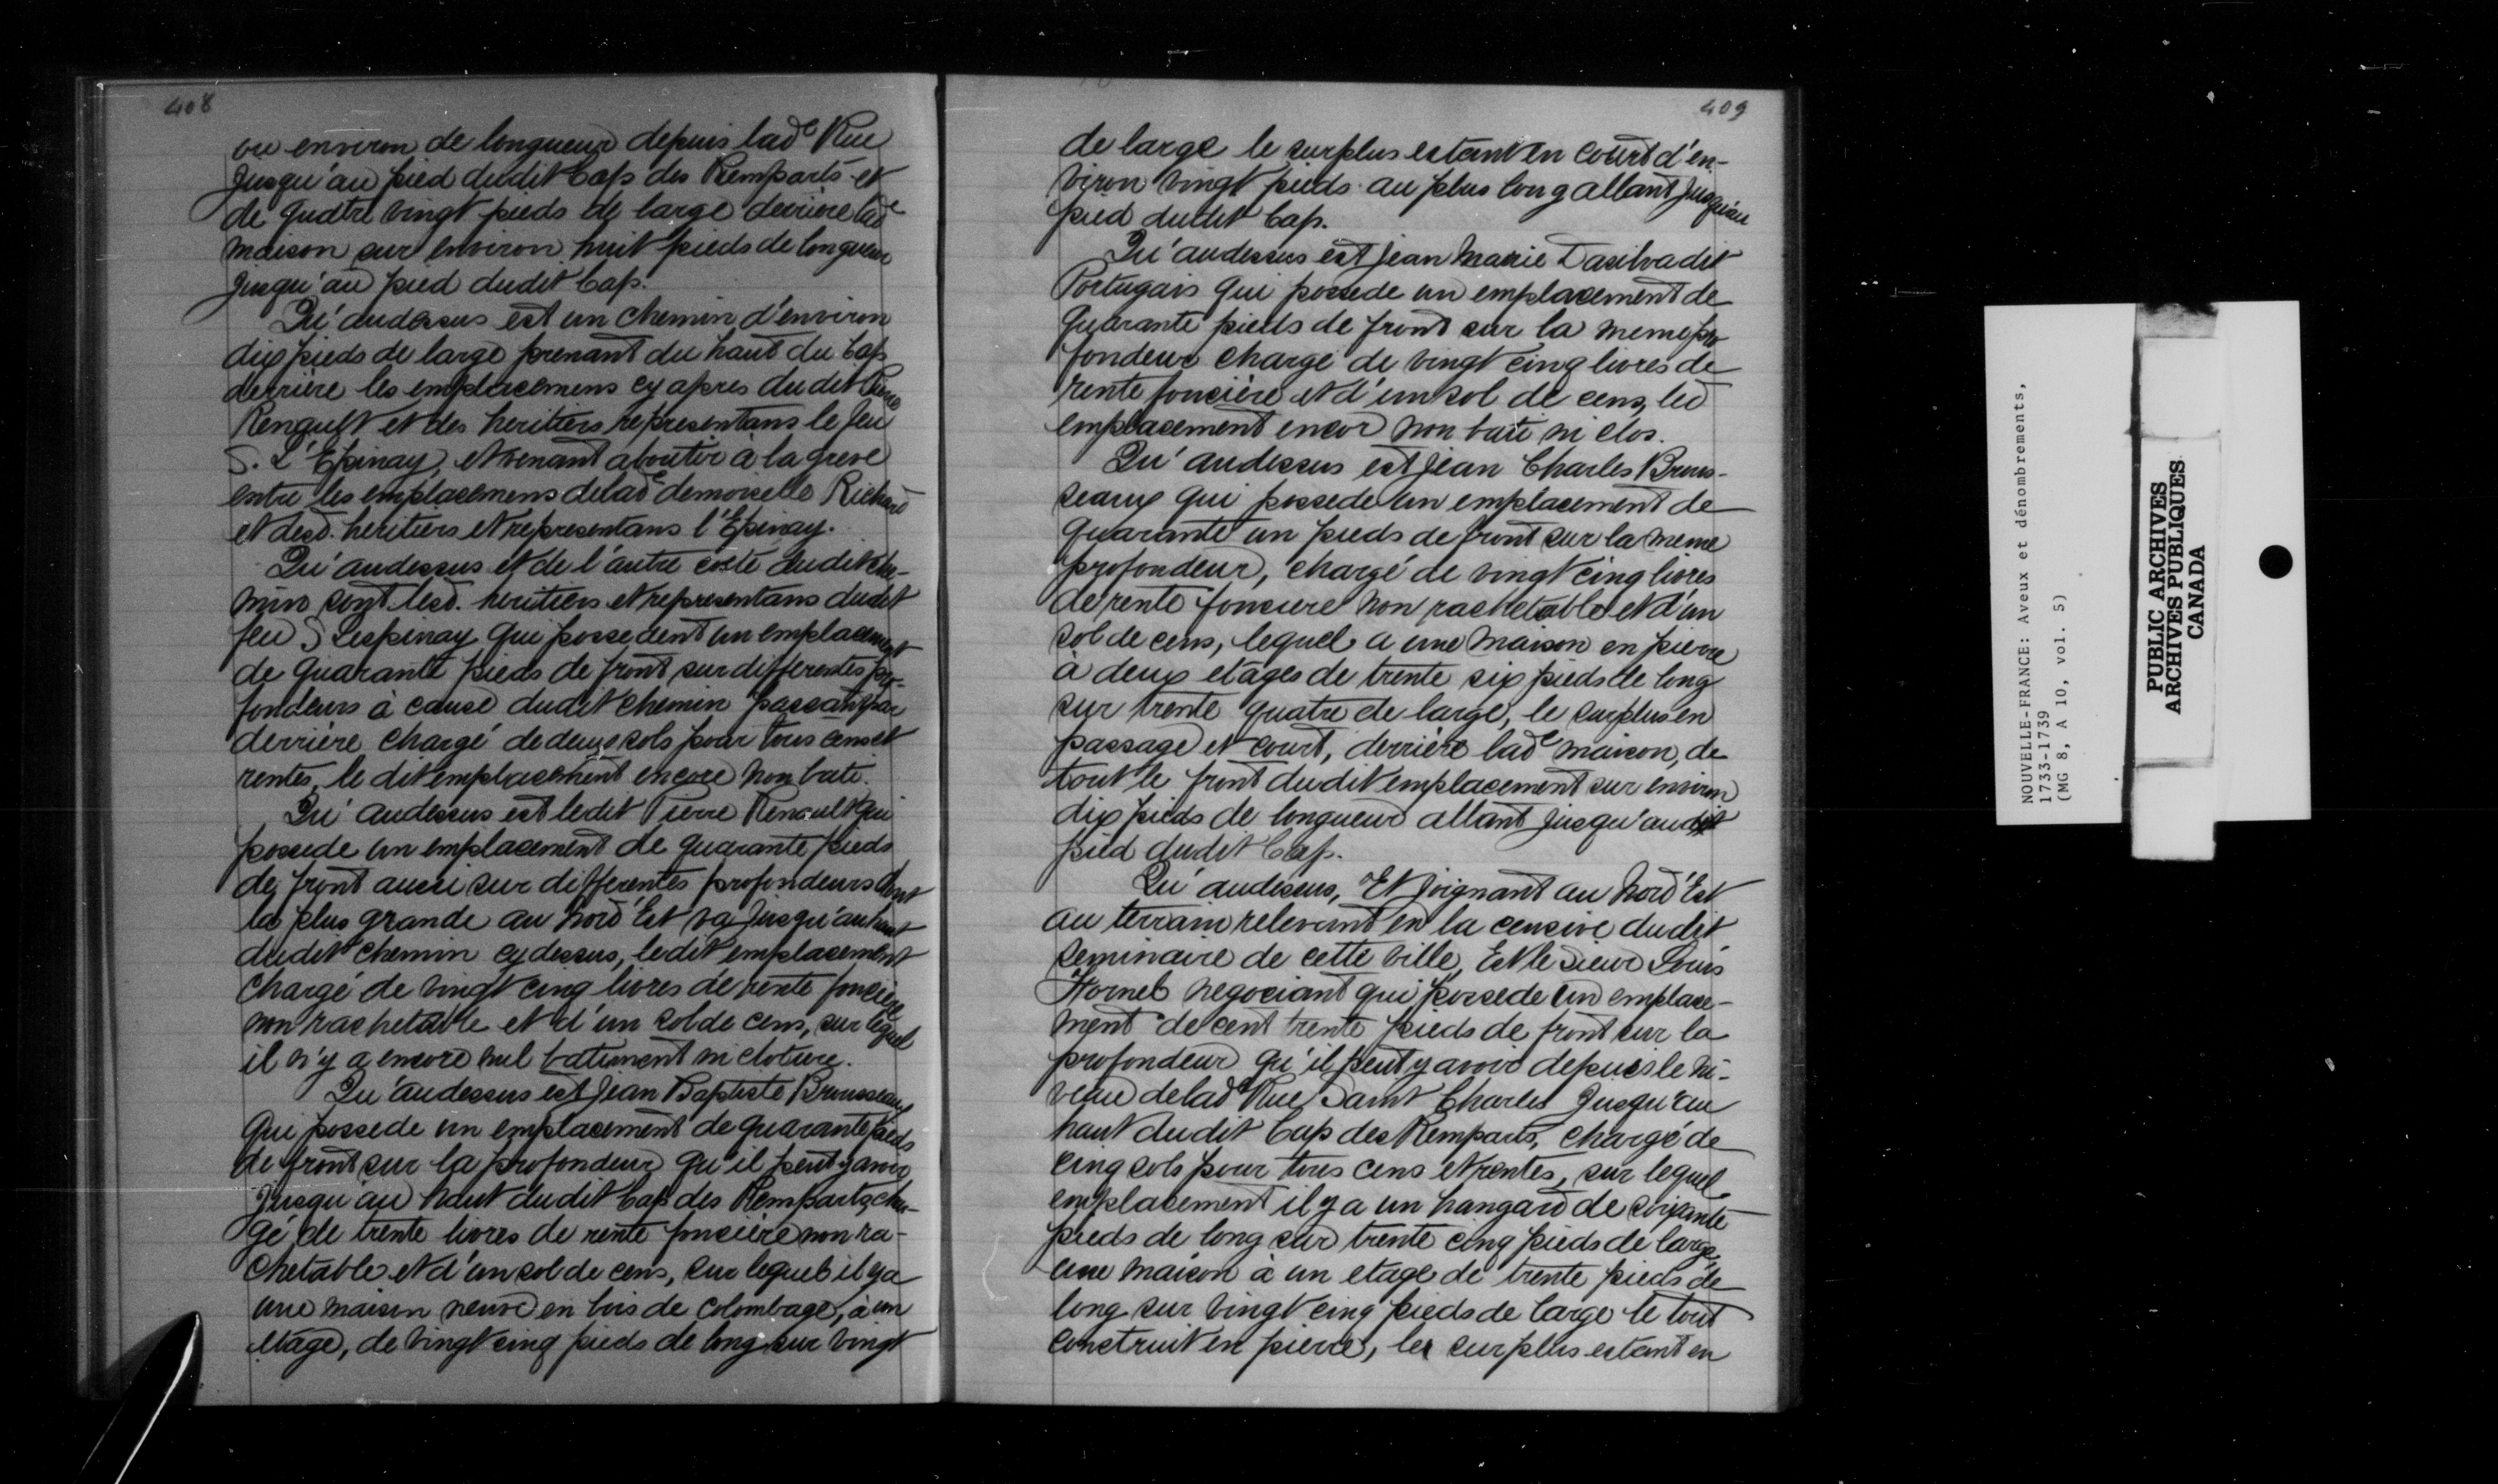 408
ou environ de longueur depuis lade Rue
Jusqu'au pied dudit Cap des Remparts et
de quatre vingt pieds de large derriere lade
maison sur environ huit pieds de longueur
Jusqu'au pied dudit Cap.
Qu'audessus est un chemin d'environ
dix pieds de large prenant du haut du Cap
derrière les emplacemens cy apres du dit Pierre
Renault et des heritiers representans le feu
S. L'Epinay, et venant aboutir à la greve
entre les emplacemens de lade demoiselle Richard
et desd. heritiers et representans l'Epinay.
Qu'audessus et de l'autre costé dudit che-
min sont lesd. heritiers et representans dudit
feu S Lespinay qui possedent un emplacement
de quarante pieds de front sur differentes pro-
fondeurs à cause dudit chemin passant par
derrière chargé de deux sols pour tous cens et
rentes, le dit emplacement encore non bati.
Qu'audessus est ledit Pierre Renault qui
possede un emplacement de quarante pieds
de front aussi sur differentes profondeurs dont
la plus grande au Nord Est va jusqu'au haut
dudit chemin cy dessus, ledit emplacement
chargé de vingt cinq livres de rente foncière
non rachetable et d'un sol de cens, sur lequel
il n'y a encore nul batiment ni cloture.
Qu'audessus est Jean Baptiste Brousseaux
qui possede un emplacement de quarante pieds
de front sur la profondeur qu'il peut y avoir
Jusqu'au haut dudit Cap des Remparts, char-
gé de trente livres de rente foncière non ra-
chetable et d'un sol de cens, sur lequel il y a
une maison neuve en bois de colombage, à un
etage, de vingt cinq pieds de long sur vingt
409
de large le surplus estant en court d'en-
viron vingt pieds au plus long allant jusqu'au
pied dudit Cap.
Qu'audessus est Jean Marie Dasilva dit
Portugais qui possede un emplacement de
quarante pieds de front sur la meme pro
fondeur chargé de vingt cinq livres de
rente foncière et d'un sol de cens, led
emplacement encor non bati ni clos.
Qu'audessus est Jean Charles Brous-
seaux qui possede un emplacement de
quarante un pieds de front sur la meme
profondeur, chargé de vingt cinq livres
de rente fonciere non rachetable et d'un
sol de cens, lequel a une maison en pierre
à deux etages de trente six pieds de long
sur trente quatre de large, le surplus en
passage et court, derrière lade maison, de
tout le front dudit emplacement sur environ
dix pieds de longueur allant jusqu'audit
pied dudit Cap.
Qu'audessus, Et joignant au Nord'Est
au terrain relevant en la censive dudit
seminaire de cette ville, Est le sieur Louis
Fornel negociant qui possede un emplace-
ment de cent trente pieds de front sur la
profondeur qu'il peut y avoir depuis le ni-
veau de lade Rue Saint Charles Jusqu'au
haut dudit Cap des Remparts, chargé de
cinq sols pour tous cens et rentes, sur lequel
emplacement il y a un hangard de soixante
pieds de long sur trente cinq pieds de large,
une maison à un etage de trente pieds de
long sur vingt cinq pieds de large le tout
construit en pierre, les surplus estant en
NOUVELLE-FRANCE: Aveux et dénombrements,
1733-1739
(MG 8, A 10, vol. 5)
PUBLIC ARCHIVES
ARCHIVES PUBLIQUES
CANADA